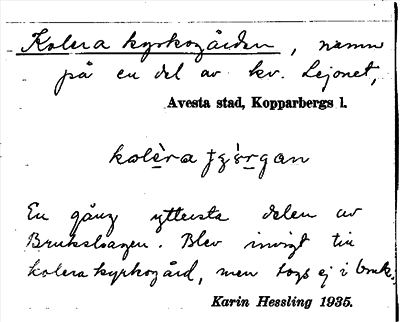 Kolera kyrkogården, namn
på en del av kv. Lejonet,
Avesta stad, Kopparbergs l.
kolèra
En gång yttersta delen av
Brukshagen. Blev invigt till
kolera kyrkogård, men togs ej i bruk.
Karin Hessling 1935.